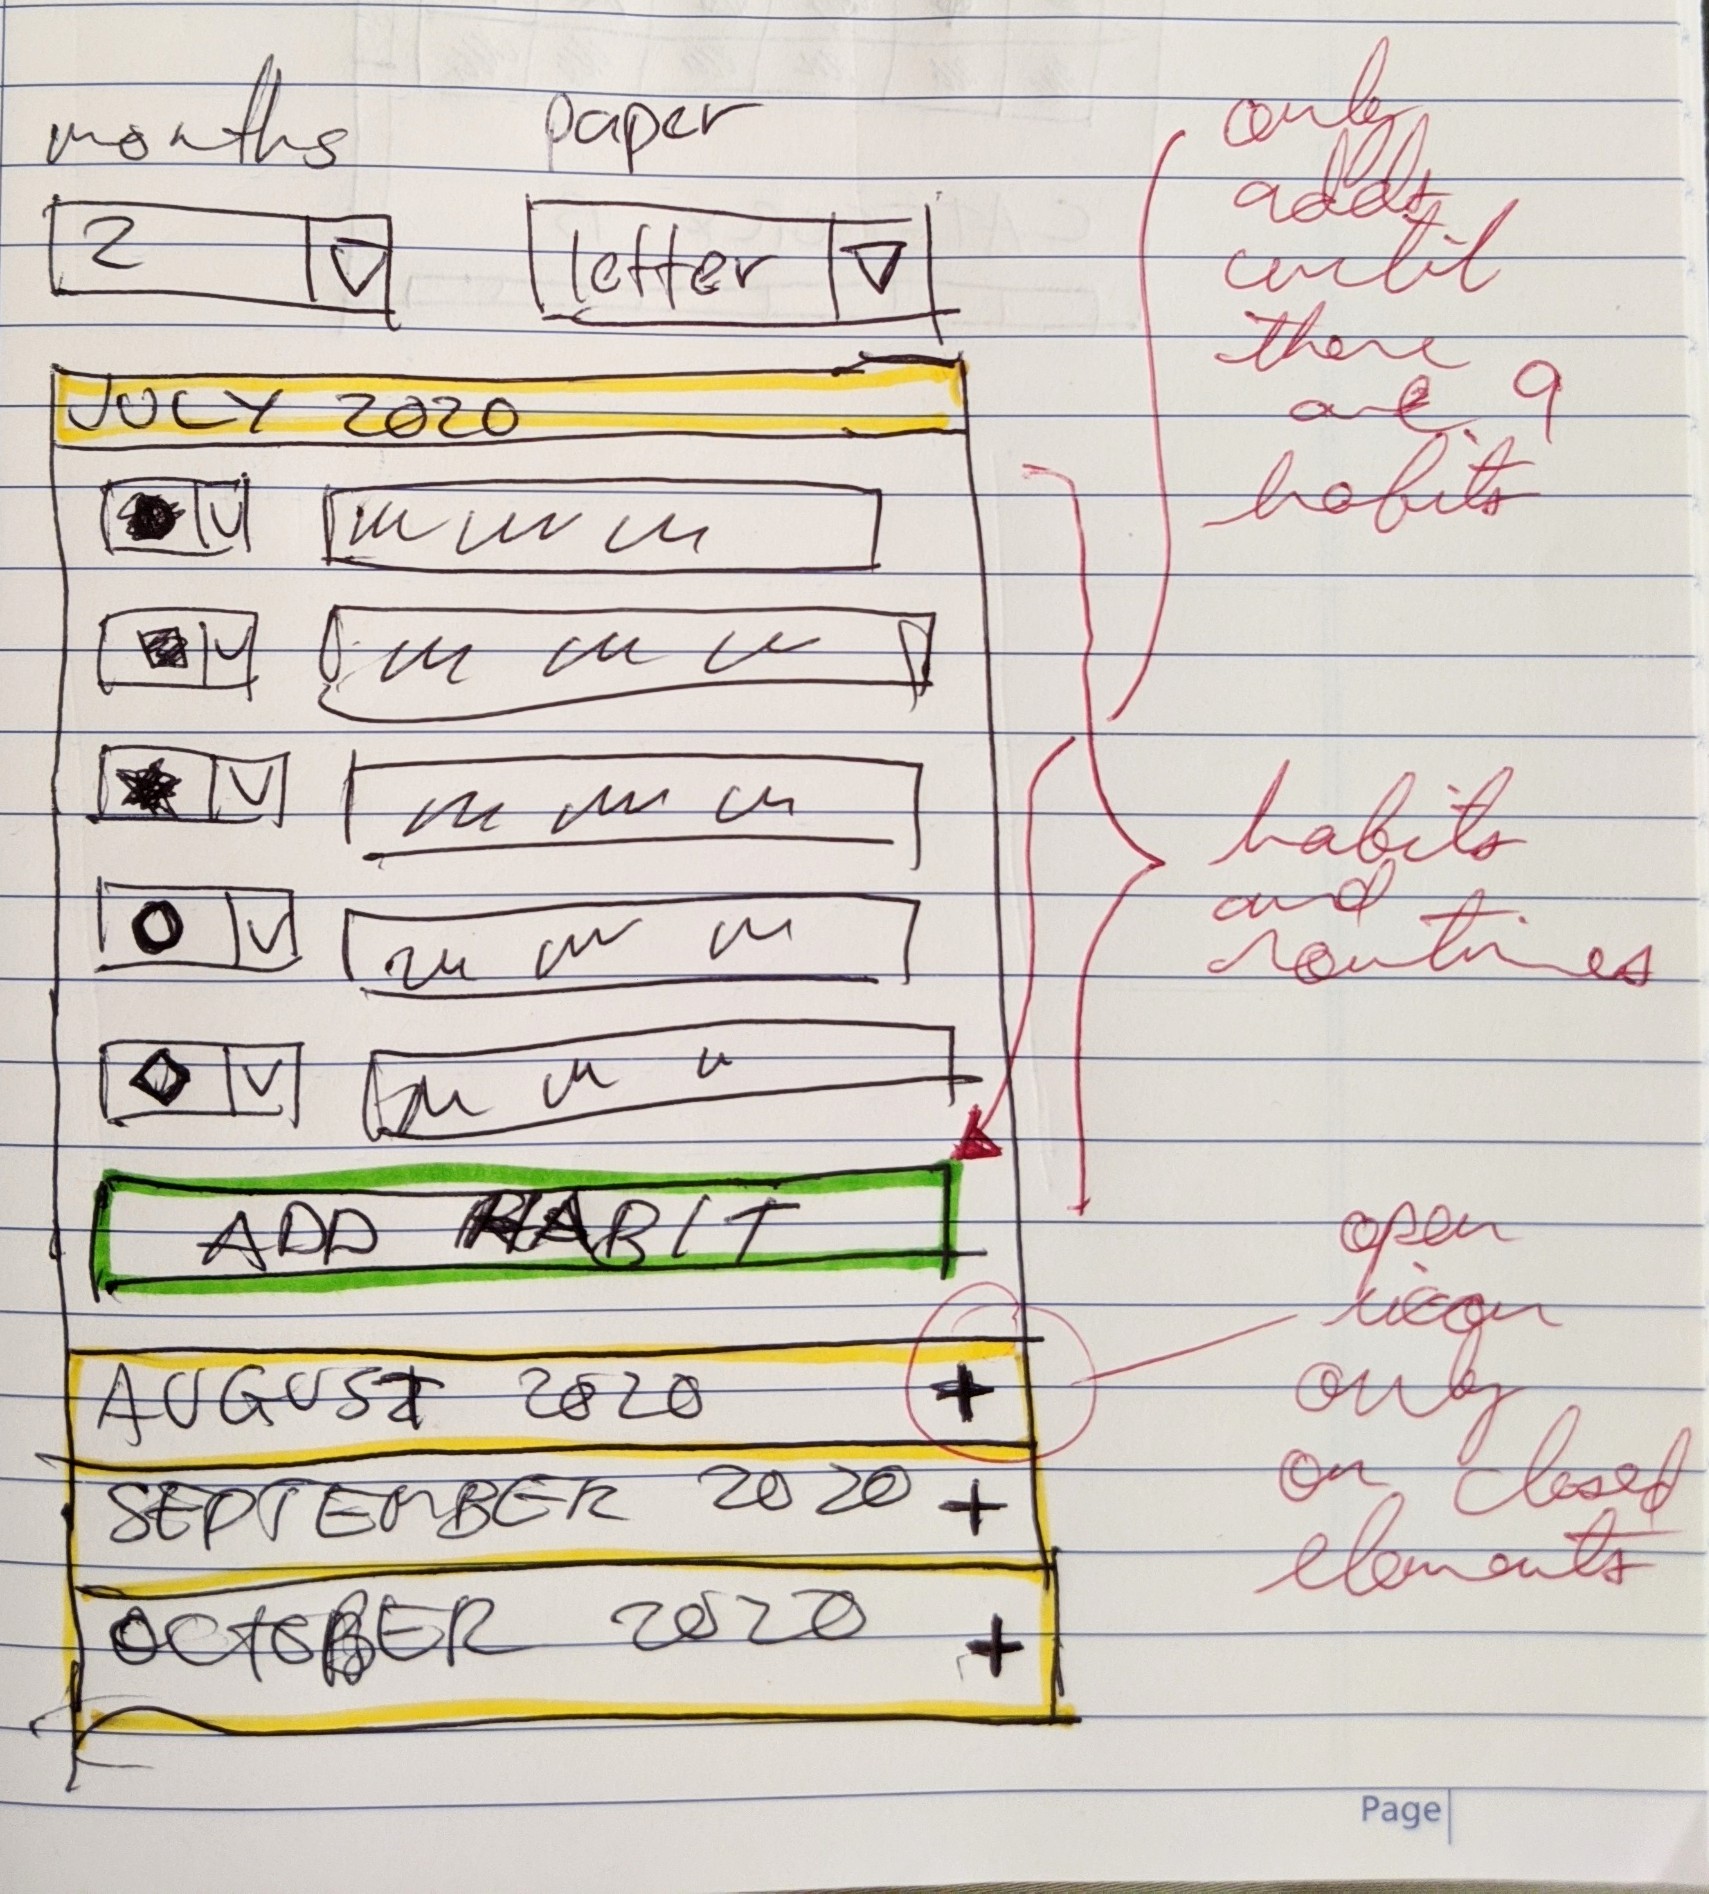 months
paper
2
letter
JULY 2020
ADD HABIT
AUGUST 2020 +
SEPTEMBER 2020 +
OCTOBER 2020 +
only
adds
until
there
are 9
habits
habits
and
routines
open
icon
only
on closed
elements
Page